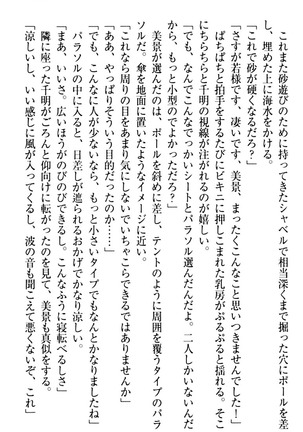 これまた砂遊びのために持ってきたシャベルで相当深くまで掘った穴にポールを差
し、埋めた上に海水をかける。
「これで砂が硬くなるだろ？」
「さすが若様です、凄いです。美景、まったくこんなこと思いつきませんでした！」
ぱちぱちと拍手をするたびにビキニに押しこまれた乳房がぷるぷると揺れる。そこ
にちらちらと千明の視線が注がれるのが嬉しい。
「でも、なんでこんなでっかいシートとパラソル選んだんだよ。二人しかいないんだ
から、もっと小型のでよかっただろ？」
美景が選んだのは、ポールを斜めに差し、テントのように周囲を覆うタイプのパラ
ソルだ。傘を地面に置いたようなイメージに近い。
「これなら周りの目をあまり気にしないでいちゃこらできるではありませんか」
「ああ、やっぱりそういう目的だったのか……」
「でも、こんなに人が少ないなら、もっと小さいタイプでもなんとかなりましたね」
パラソルの中に入ると、日差しが遮られるおかげでかなり涼しい。
「まあ、いいさ。広いほうがのびのびできるし。こんなふうに寝転べるしさ」
隣に座った千明がごろんと仰向けに転がったのを見て、美景も真似をする。
「涼しいし、いい感じに風が入ってくるし、波の音も聞こえて悪くないぞ、これ」